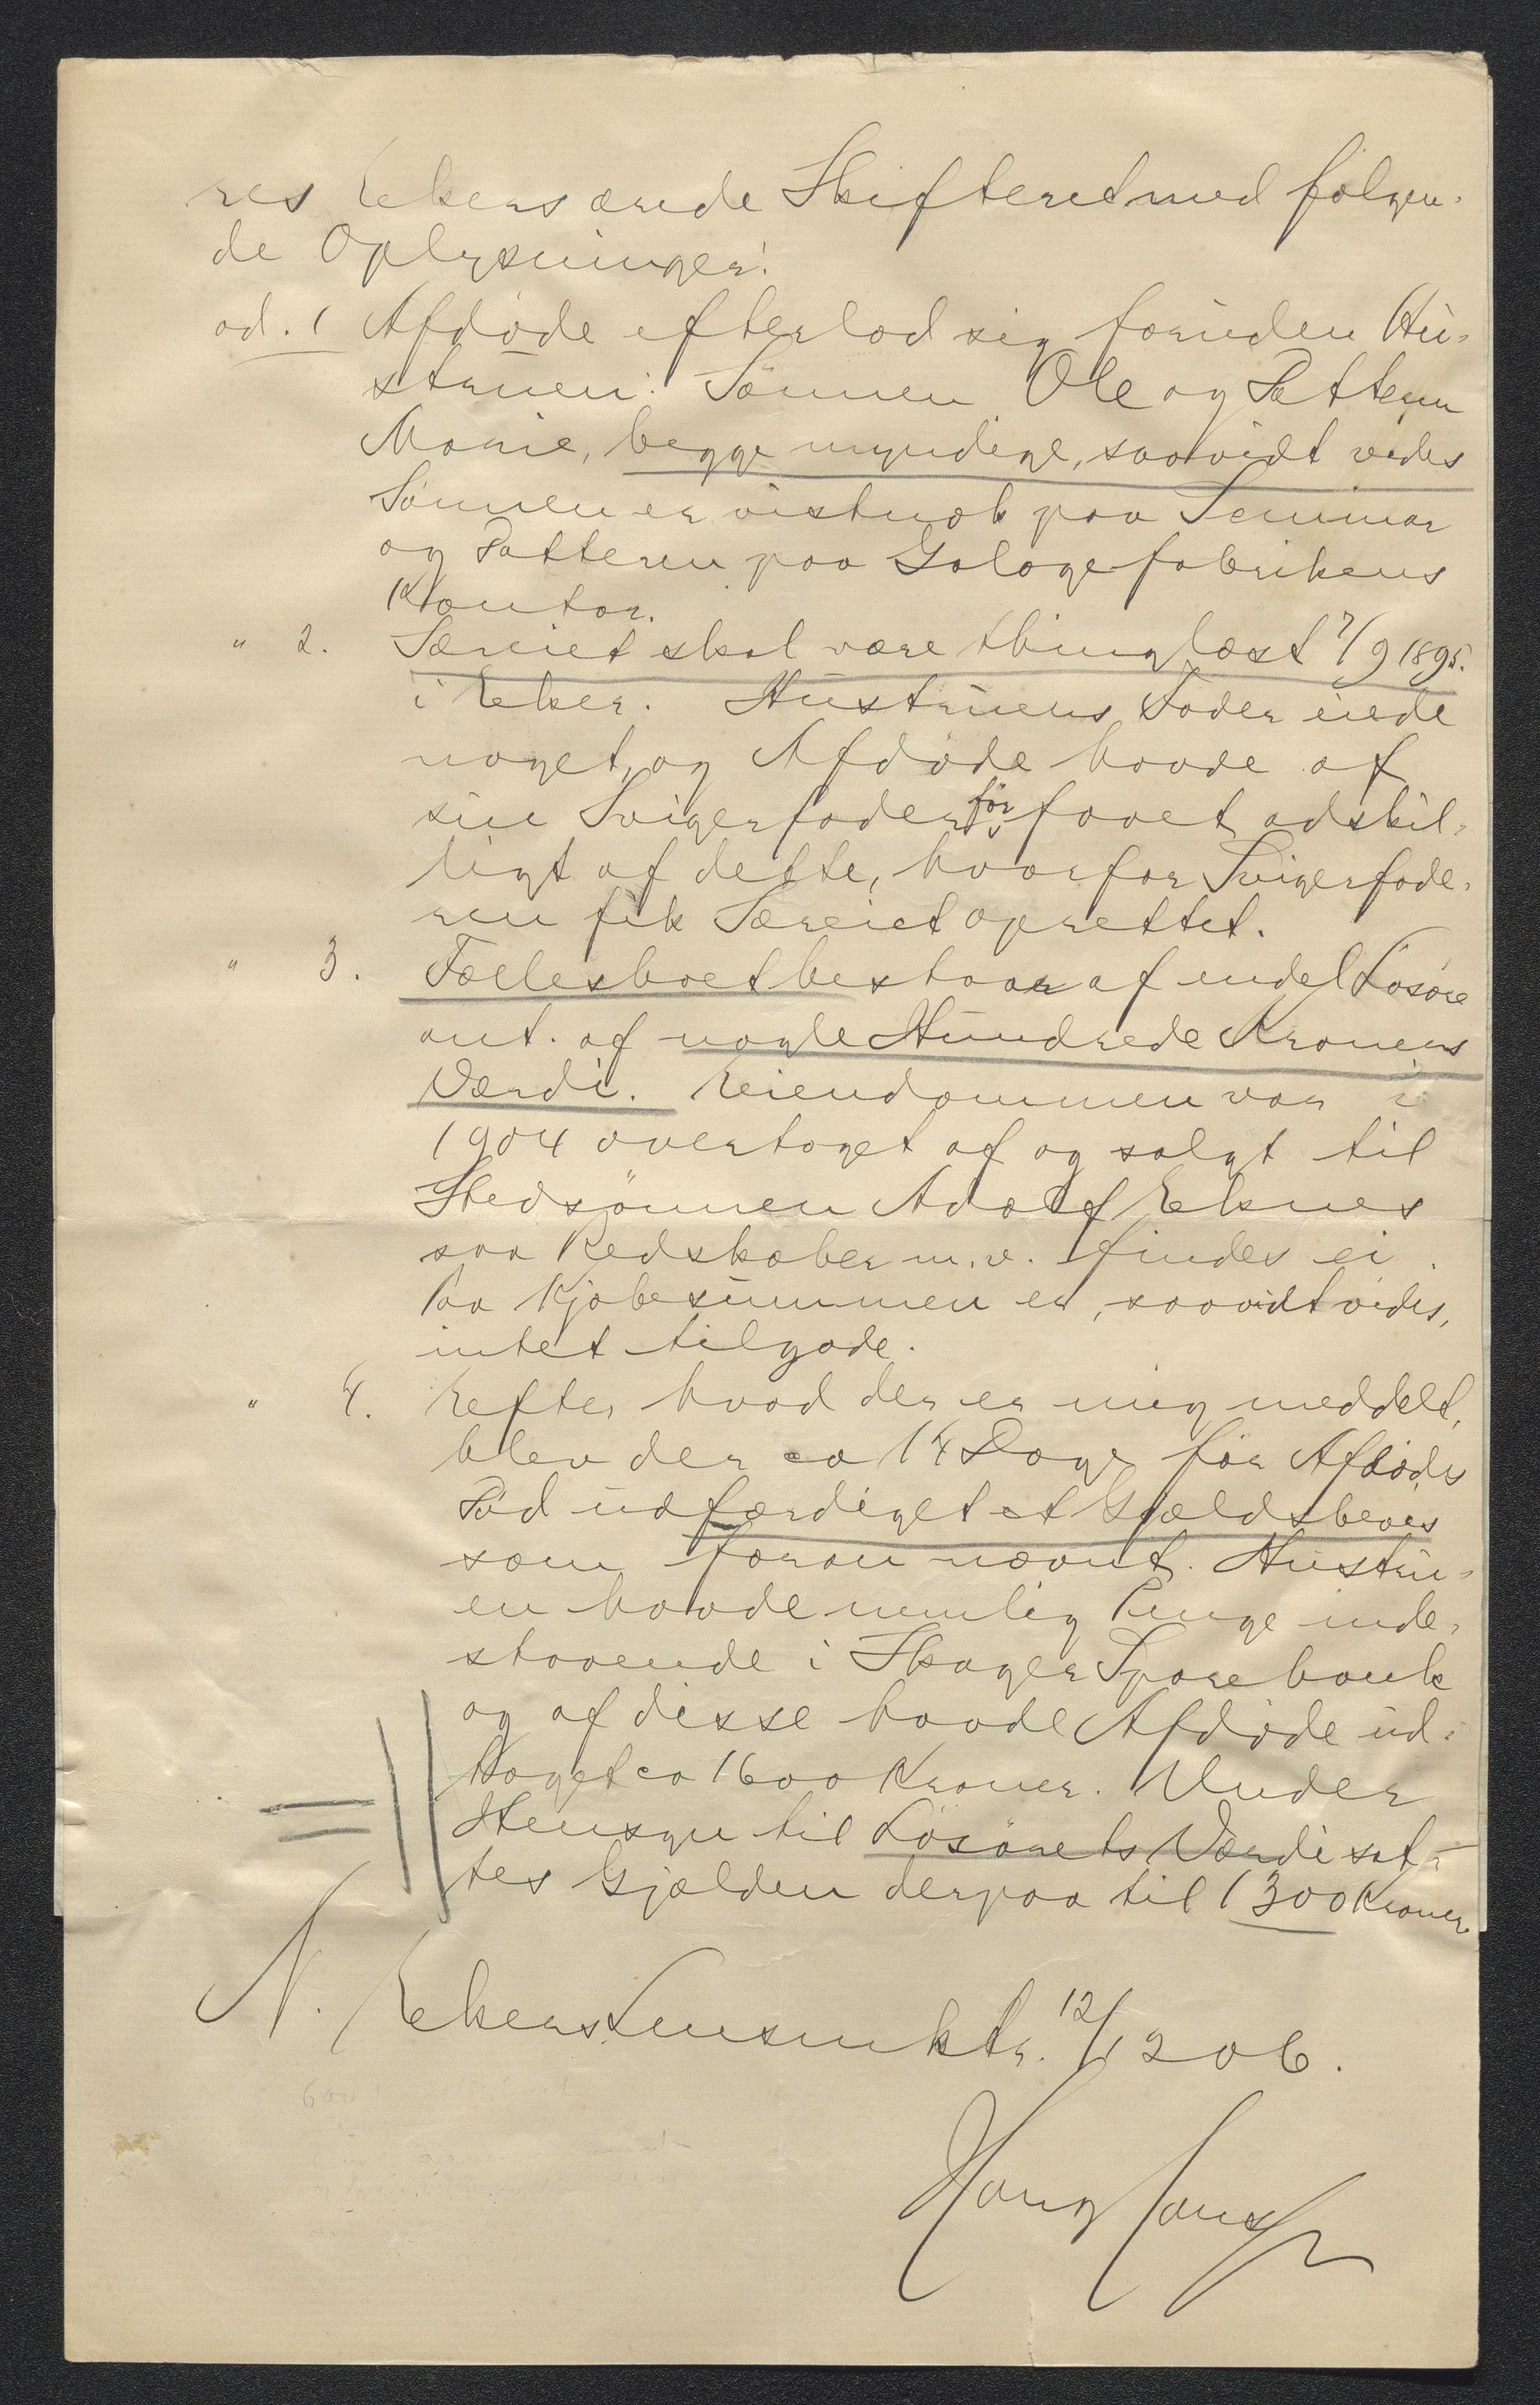 res Ekers ærede Skifteret med følgen-
de Oplysninger:
ad. 1 Afdøde efterlod sig foruden Hu-
struen: Sønnen Ole og Datteren
Marie, begge myndige, saavidt vides
Sønnen er vistnok paa Seminar
og Datteren paa Galoge fabrikens
Kontor.
" 2. Særeiet skal være thinglæst 7/9 1895.
i Eker. Hustruens Fader eiede
noget, og Afdøde havde af
sin Svigerfader før faaet adskil-
ligt af dette, hvorfor Svigerfade-
ren fik Særeiet oprettet.
" 3. Fællesboet bestaar af endel Løsøre
ant. af nogle Hundrede Kroners
Værdi. Eiendommen var i
1904 overtaget af og solgt til
Stedsønnen Adolf Eknes
saa Redskaber m.v. findes ei.
Paa Kjøbesummen er, saavidt vides,
intet tilgode.
" 4. Efter hvad der er mig meddelt,
blev der ca 14 Dage før Afdødes
Død udfærdiget et Gjældsbevis
som foran nævnt. Hustru-
en havde nemlig Penge inde-
staaende i Skoger Sparebank
og af disse havde Afdøde ud-
taget ca 1600 Kroner. Under
Hensyn til Løsørets Værdi sat-
tes Gjælden derpaa til 1300 Kroner.
N. Ekers Lensmktr. 12/12 06.